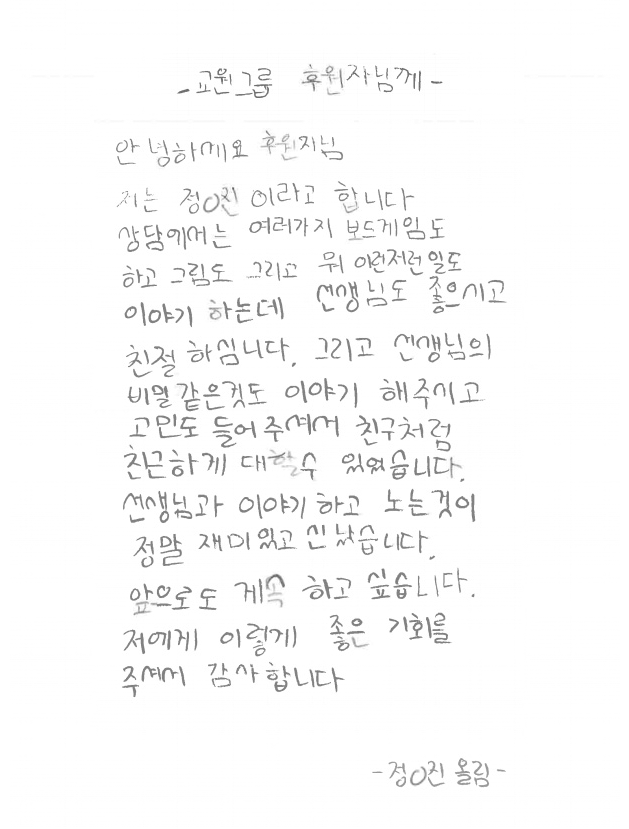 - 교원그룹 후원자님께 -
안녕하세요 후원자님
저는 정O진 이라고 합니다
상담에서는 여러가지 보드게임도
하고 그림도 그리고 뭐 이런저런 일도
이야기 하는데 선생님도 좋으시고
친절 하십니다. 그리고 선생님의
비밀같은것도 이야기 해주시고
고민도 들어주셔서 친구처럼
친근하게 대할수 있었습니다.
선생님과 이야기하고 노는것이
정말 재미있고 신났습니다.
앞으로도 계속 하고 싶습니다.
저에게 이렇게 좋은 기회를
주셔서 감사합니다
- 정O진 올림 -